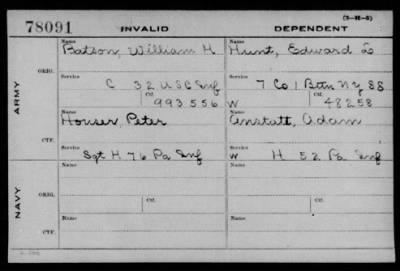 (3-H-5)
78091 INVALID DEPENDENT
Name Name
Batson, William H Hunt, Edward L
ORIG. Service Service
C 32 USC Inf 7 Co 1 Bttn N.Y. SS
Ctf. Ctf.
993556 W 48258
ARMY
Name Name
Houser, Peter Anstatt, Adam
CTF. Service Service
Sgt H 76 Pa Inf W H 52 Pa Inf
Name Name
ORIG. Service Service
Ctf. Ctf.
NAVY
Name Name
CTF. Service Service